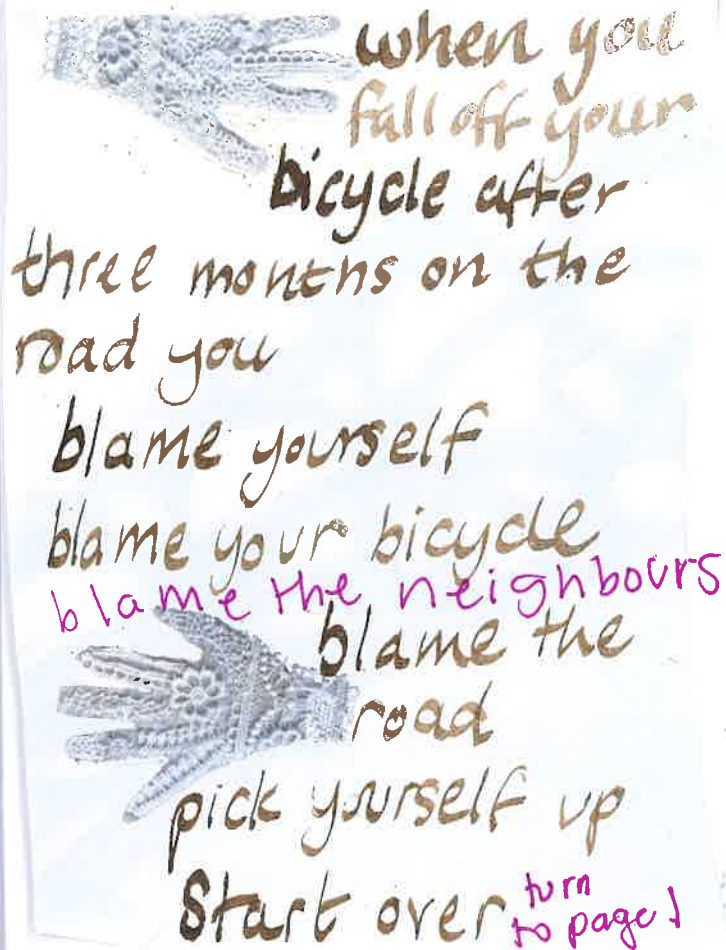 when you
fall off your
bicycle after
three months on the
road you
blame yourself
blame your bicycle
blame the neighbours
blame the
road
pick yourself up
Start over turn
to page 1